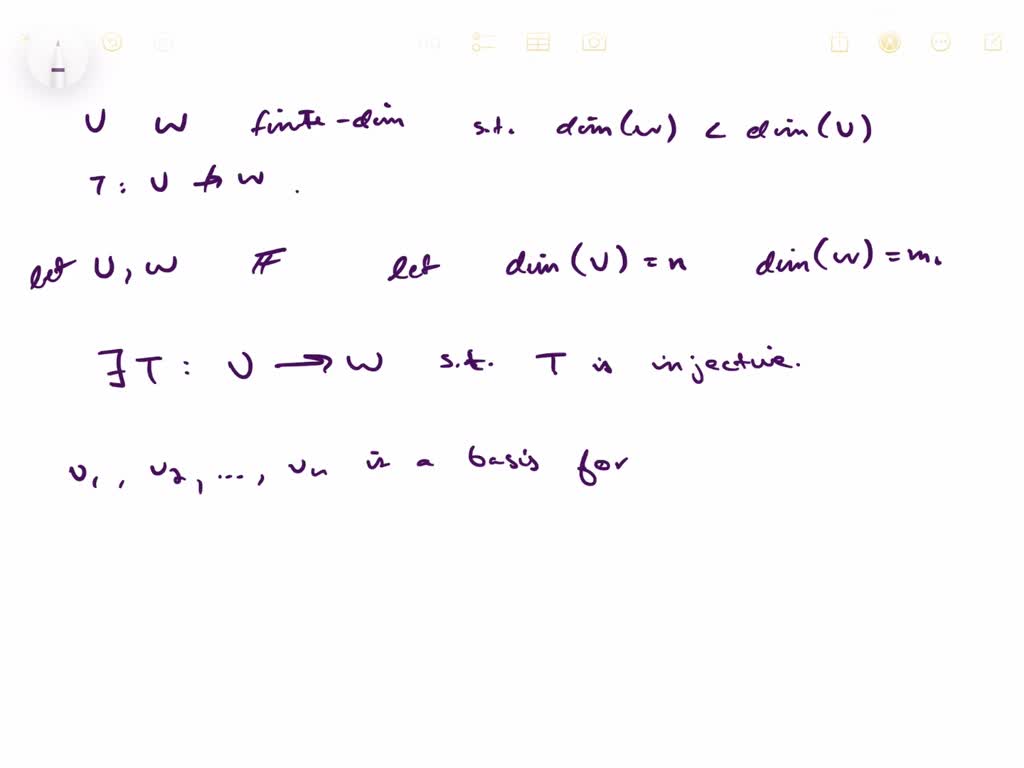 U W finite-dim s.t. dim(W) < dim(U)
T: U ↛ W .
let U, W 𝔽 let dim(U) = n dim(W) = m.
∃ T: U → W s.t. T is injective.
u₁, u₂, ..., uₙ is a basis for